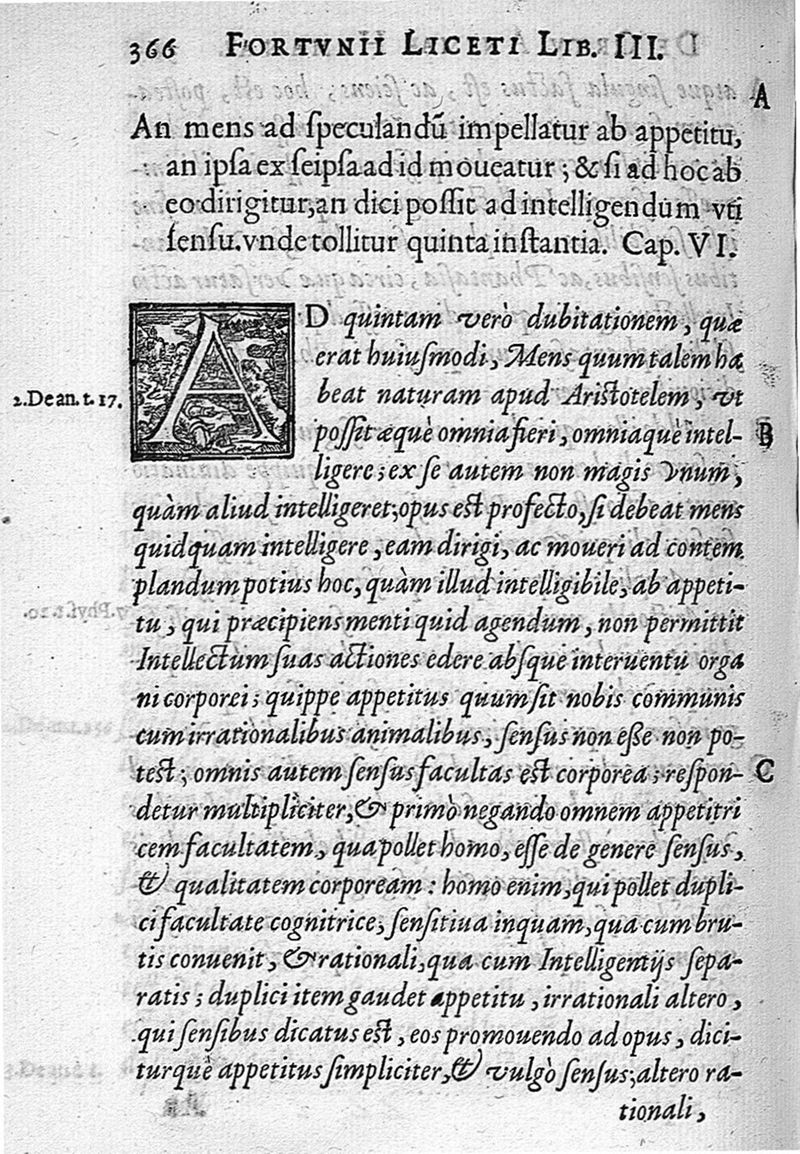 366 FORTVNII LICETI LIB. III.
A
An mens ad ſpeculandū impellatur ab appetitu,
an ipſa ex ſeipſa ad id moueatur; & ſi ad hoc ab
eo dirigitur, an dici poſſit ad intelligendum vti
ſenſu. vnde tollitur quinta inſtantia. Cap. VI.
AD quintam verò dubitationem, quæ
erat huiuſmodi, Mens quum talem ha
2. De an. t. 17. beat naturam apud Ariſtotelem, vt
poſſit æquè omnia fieri, omniaquè intel- B
ligere; ex ſe autem non magis vnum,
quàm aliud intelligeret; opus eſt profecto, ſi debeat mens
quidquam intelligere, eam dirigi, ac moueri ad contem
plandum potius hoc, quàm illud intelligibile, ab appeti-
tu, qui præcipiens menti quid agendum, non permittit
Intellectum ſuas actiones edere abſque interuentu orga
ni corporei; quippe appetitus quum ſit nobis communis
cum irrationalibus animalibus, ſenſus non eſſe non po-
teſt; omnis autem ſenſus facultas eſt corporea; reſpon- C
detur multipliciter, & primò negando omnem appetitri
cem facultatem, qua pollet homo, eſſe de genere ſenſus,
& qualitatem corpoream: homo enim, qui pollet dupli-
ci facultate cognitrice, ſenſitiua inquam, qua cum bru-
tis conuenit, & rationali, qua cum Intelligentijs ſepa-
ratis; duplici item gaudet appetitu, irrationali altero,
qui ſenſibus dicatus eſt, eos promouendo ad opus, dici-
turquè appetitus ſimpliciter, & vulgò ſenſus; altero ra-
tionali,